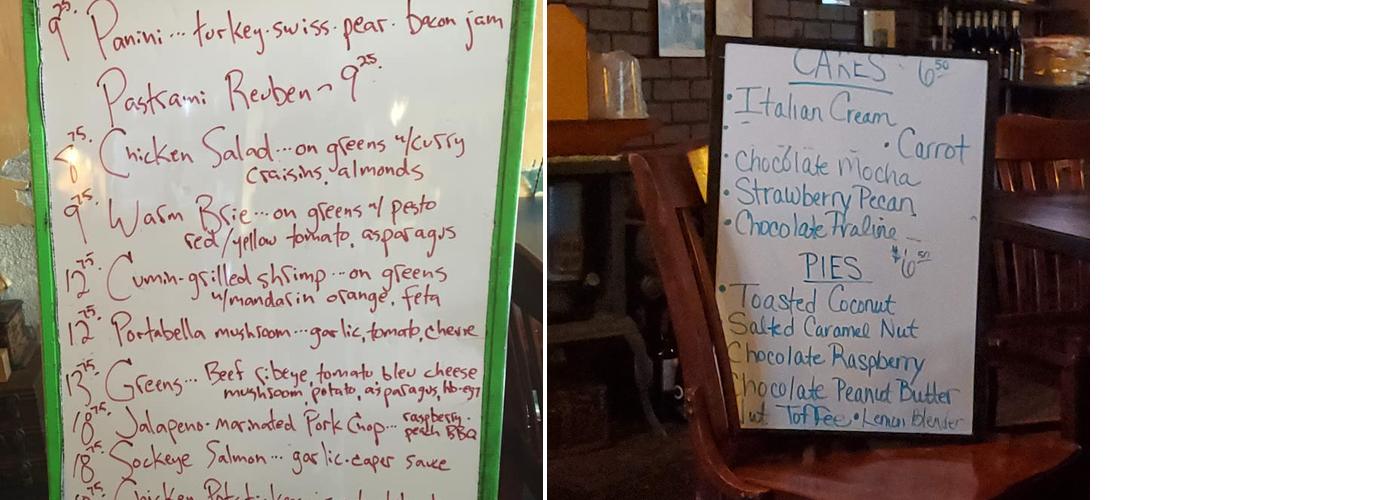 9 25. Panini... turkey. swiss. pear. bacon jam
Pastrami Reuben ~ 9 25.
8 75. Chicken Salad... on greens w/curry
craisins, almonds
9 75. Warm Brie... on greens w/ pesto
red/yellow tomato, asparagus
12 75. Cumin-grilled shrimp... on greens
w/mandarin orange, feta
12 75. Portabella mushroom... garlic, tomato, chevre
13 75. Greens... Beef ribeye, tomato, bleu cheese
mushroom, potato, asparagus, hb-egg
18 75. Jalapeno-marinated Pork Chop... raspberry-
peach BBQ
18 75. Sockeye Salmon... garlic-caper sauce
Chicken
CAKES - 6 50
• Italian Cream
• Carrot
• Chocolate Mocha
• Strawberry Pecan
• Chocolate Praline
PIES $6 50
• Toasted Coconut
Salted Caramel Nut
Chocolate Raspberry
Chocolate Peanut Butter
Nut Toffee • Lemon Blender